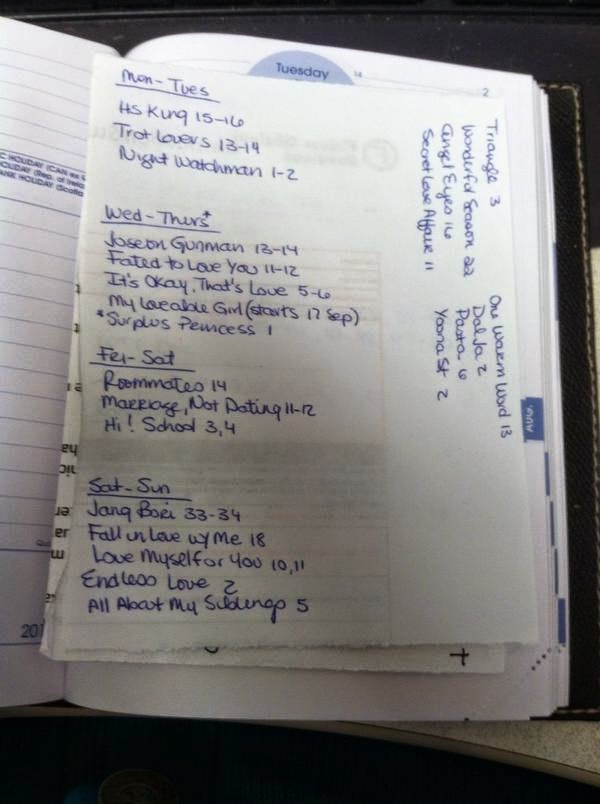 Tuesday
14
2
Mon-Tues
HS King 15-16
Trot Lovers 13-14
Night Watchman 1-2
Wed-Thurs*
Joseon Gunman 13-14
Fated to Love You 11-12
It's Okay, That's Love 5-6
My Loveable Girl (starts 17 Sep)
*Surplus Princess 1
Fri-Sat
Roommates 14
Marriage, Not Dating 11-12
Hi! School 3,4
Sat-Sun
Jang Bori 33-34
Fall in Love w/ Me 18
Love Myself or You 10,11
Endless Love 2
All About My Siblings 5
Triangle 3
Wonderful Season 22
Angel Eyes 16
Secret Love Affair 11
One Warm Word 13
Dal Ja 2
Pasta 6
Yoona St 2
AUG
HOLIDAY (CAN
HOLIDAY (Rep. of Irela
BANK HOLIDAY (Scotla
201